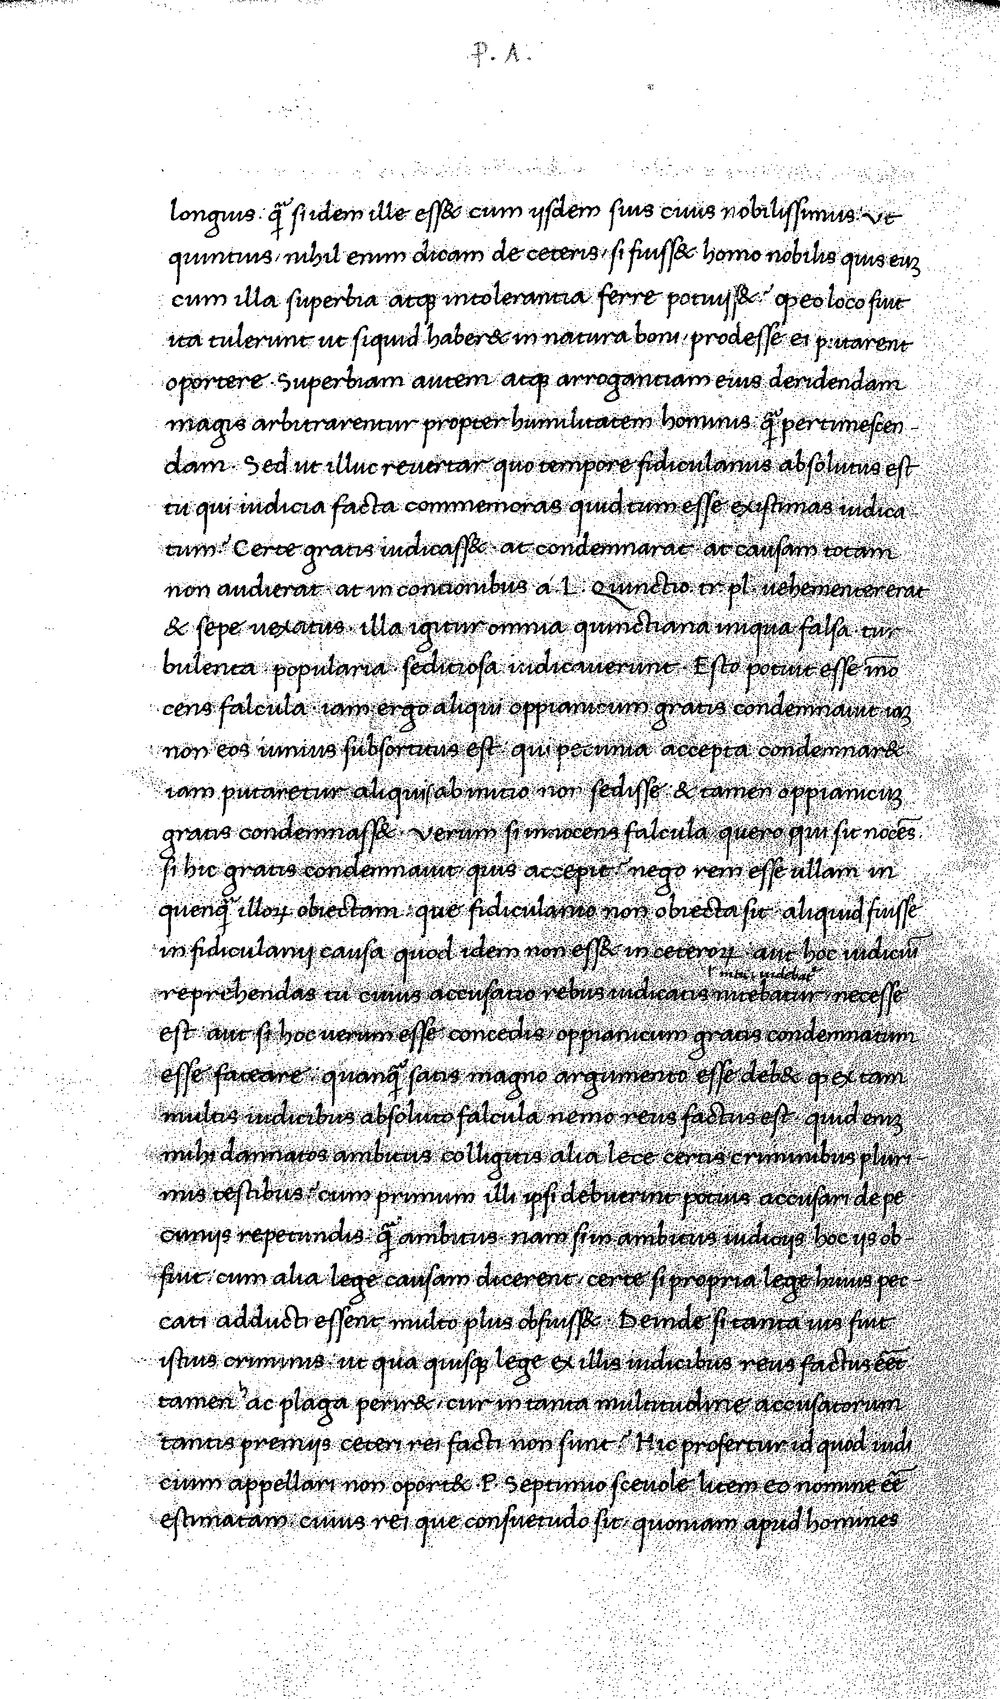 P. A.
longius. q̃ȝ si idem ille ess& cum iisdem suis cuius nobilissimus. Vt
quintius, nihil enim dicam de ceteris, si fuiss& homo nobilis quis euȝ
cum illa superbia atqȝ intolerantia ferre potuiss&? ꝙ eo loco fuit
ita tulerunt ut siquid haber& in natura boni, prodesse ei putarent
oportere. Superbiam autem atqȝ arrogantiam eius deridendam
magis arbitrarentur propter humilitatem hominis q̃ȝ pertimescen-
dam. Sed ut illuc revertar quo tempore fidiculanius absolutus est
tu qui iudicia facta commemoras quid tum esse existimas iudica
tum? Certe gratis iudicass&. at condemnarat at causam totam
non audierat. at in concionibus a. L. Quinctio. tr. pl. uehementer erat
& sepe uexatus. illa igitur omnia quinctiana iniqua falsa tur
bulenta popularia seditiosa iudicauerunt. Esto potuit esse īno
cens falcula. iam ergo aliqui oppianicum gratis condemnauit iaȝ
non eos iunius subsortitus est qui pecunia accepta condemnar&
iam putaretur aliquis ab initio non sedisse & tamen oppianicuȝ
gratis condemnass&. Verum si innocens falcula quero qui sit nocẽs
si hic gratis condemnauit quis accepit? nego rem esse ullam in
quenq̃ȝ illoꝝ obiectam. que fidiculanio non obiecta sit. aliquid fuisse
in fidiculanii causa quod idem non ess& in ceteroꝝ aut hoc iudiciū
reprehendas tu cuius accusatio rebus iudicatis nitebatur, necesse
est aut si hoc uerum esse concedis, oppianicum gratis condemnatum
esse fateare. quanq̃ȝ satis magno argumento esse deb& ꝙ ex tam
multis iudicibus absoluto falcula nemo reus factus est. quid eniȝ
mihi damnatos ambitus colligitis alia lece certis criminibus pluri-
mis testibus? cum primum illi ipsi debuerint potius accusari de pe
cuniis repetundis. q̃ȝ ambitus. nam si in ambitus iudiciis hoc iis ob-
fuit, cum alia lege causam dicerent, certe si propria lege huius pec-
cati adducti essent multo plus obfuiss&. Deinde si tanta uis fuit
istius criminis ut qua quisqȝ lege ex illis iudicibus reus factus eẽt
tamen hac plaga perir&, cur in tanta multitudine accusatorum
tantis premiis ceteri rei facti non sunt? Hic profertur id quod iudi
cium appellari non oport&. P. Septimio sceuole litem eo nomine eẽ
estimatam. cuius rei que consuetudo sit, quoniam apud homines